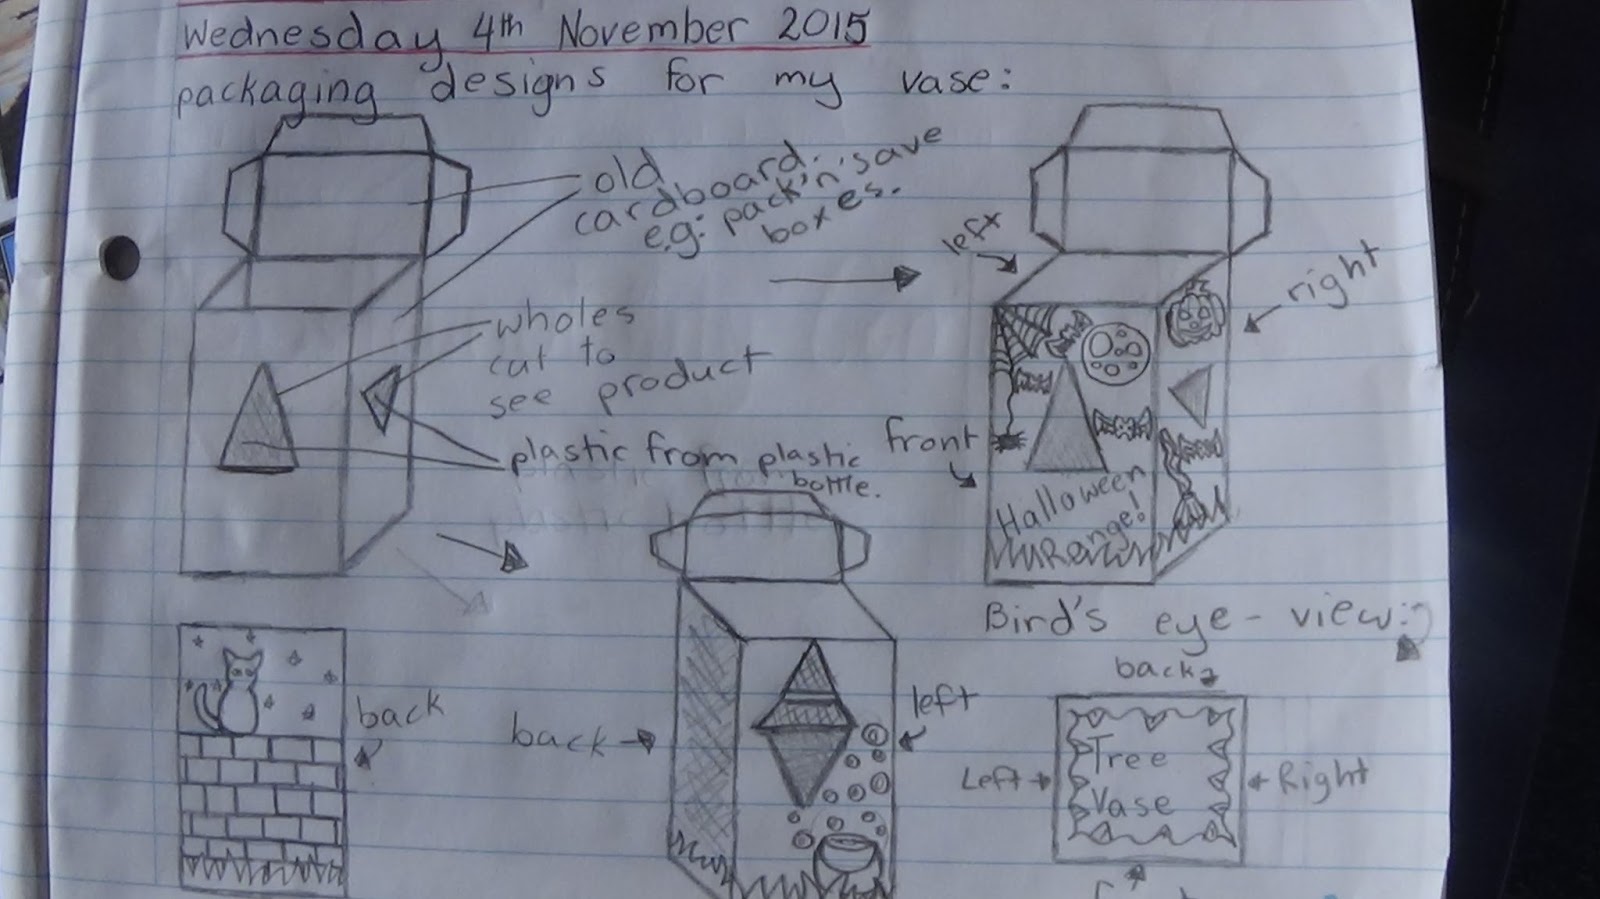 Wednesday 4th November 2015
packaging designs for my vase:
old
cardboard.
e.g: pack'n'save
boxes.
wholes
cut to
see product
plastic from plastic
bottle.
left
right
front
Halloween
Range!
back
back
left
Bird's eye-view:
back
Left
Tree
Vase
Right